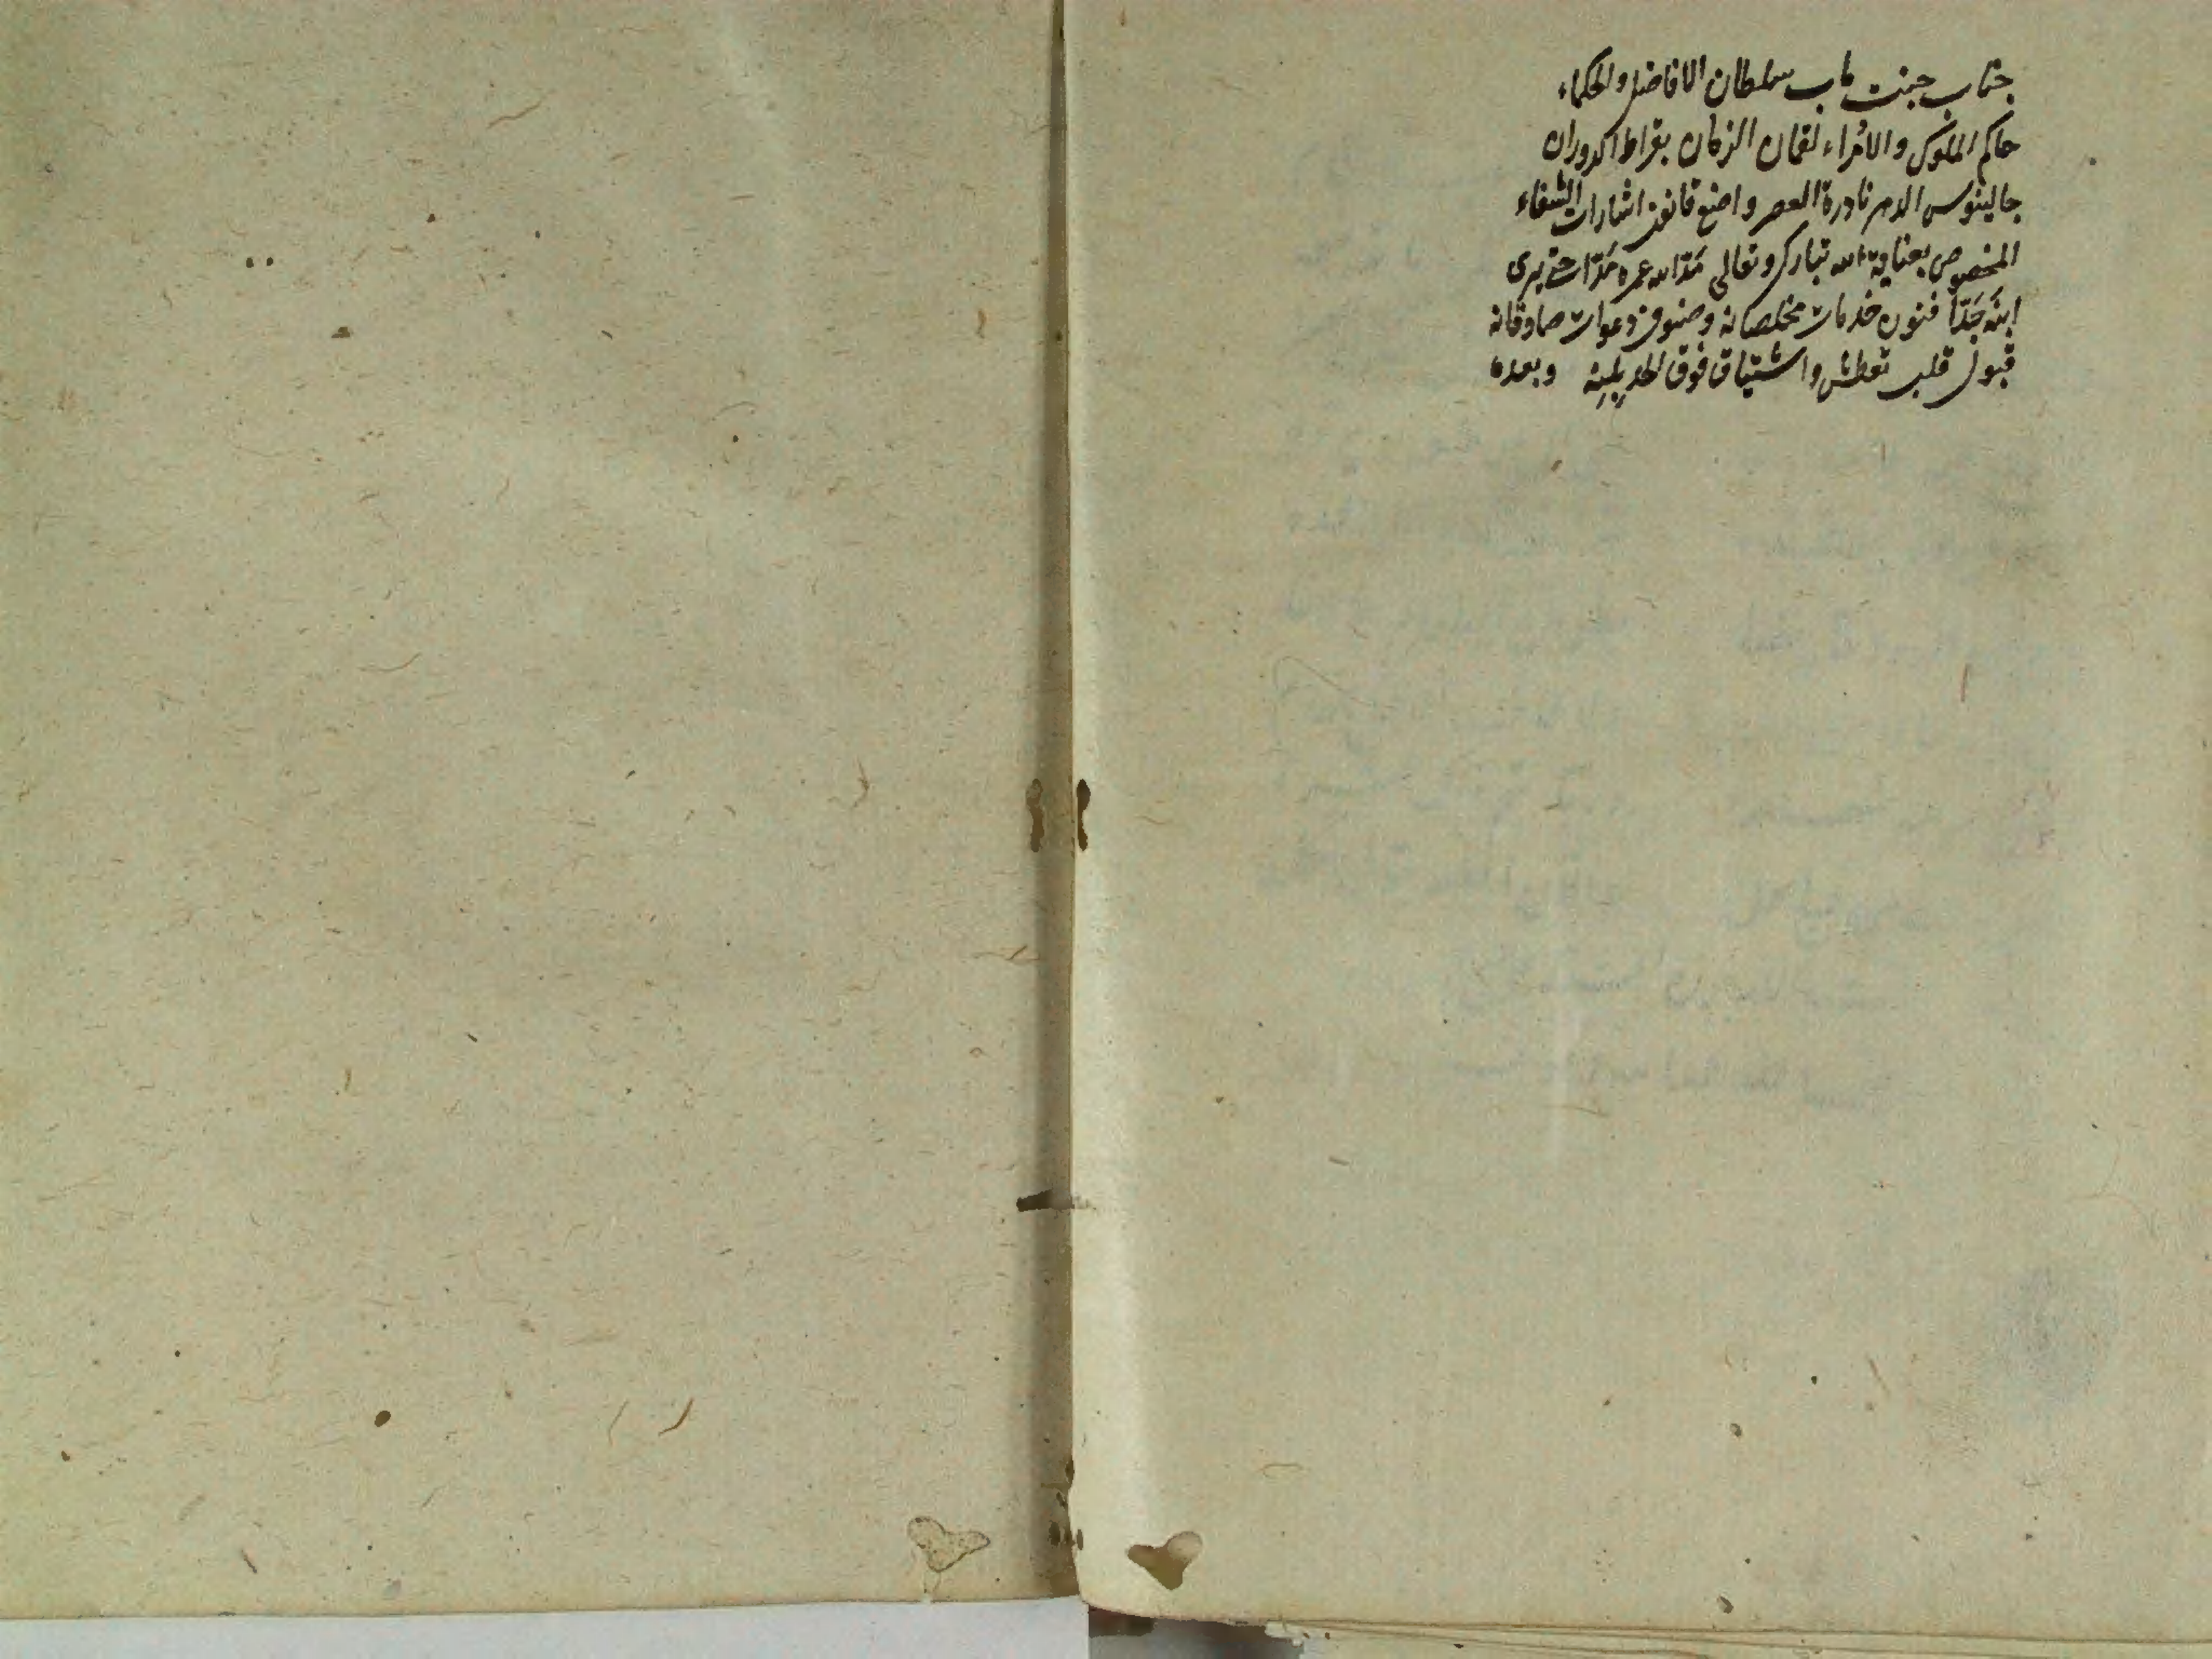 جناب جنت ماب سلطان الافاضل والحكماء
حاكم الملوك والامراء لقمان الزمان بقراط الدوران
جالينوس الدهر نادرة العصر واضع قانون اشارات الشفاء
المخصوص بعناية الله تبارك وتعالى مَدّ الله عمره مَدّا حتى يرى
ابنَه جَدّا فنون خدمات مخلصانه وصنوف دعوات صادقانه
قبول قلب تعطش واشتياق فوق الحد بلينه وبعده